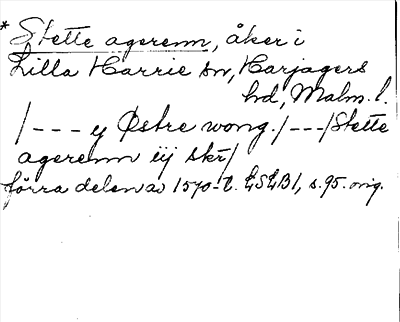 * Stette agerenn, åker i
Lilla Harrie sn, Harjagers
hd, Malm. l.
/--- y Østre wong. /---/ Stette
agerenn iij skr/
förra delen av 1570-t. LSLB1, s. 95. orig.